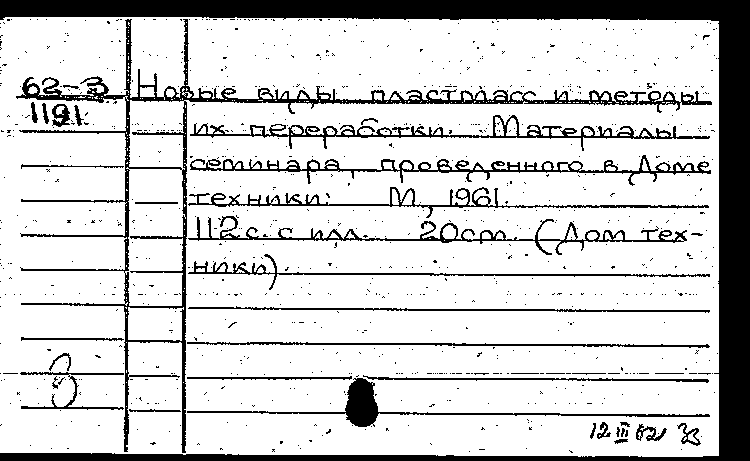 62-3 Новые виды пластмасс и методы
1191
их переработки. Материалы
семинара, проведенного в Доме
техники. М., 1961.
112 с. с илл. 20 cm. (Дом тех-
ники).
З
12 III 62